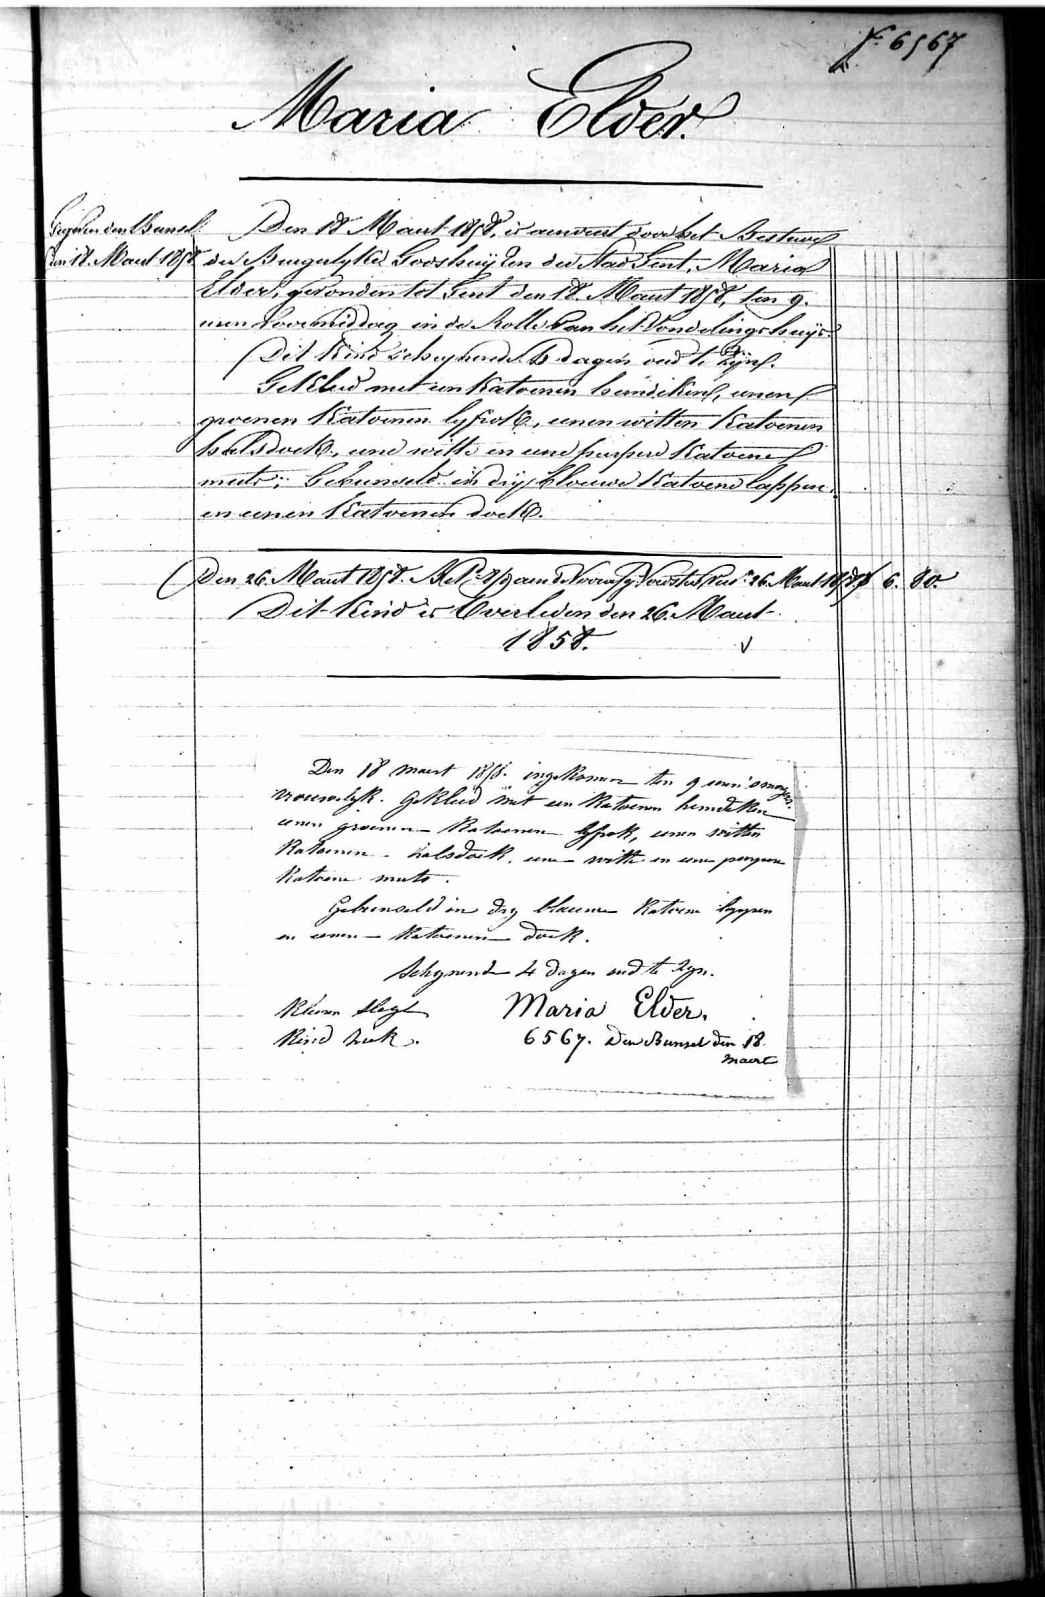 N.° 6567
Maria Elder.
Gegeven den Bunsel
den 18. Maert 1858
Den 18 Maert 1858, is aenveert door het Bestuer
der Burgelyke Godshuyzen der Stad Gent, Maria
Elder, gevonden tot Gent den 18. Maert 1858, ten 9.
uren voormiddag in de Rolle van het Vondelingshuys.
Dit kind schynende 4 dagen oud te zyn.
Gekleed met een katoenen hemdeken, eenen
groenen katoenen lyfrok, eenen witten katoenen
halsdoek, eene witte en eene purpere katoene
muts; Gebunseld in dry blauwe katoene lappen
en eenen katoenen doek.
Den 26. Maert 1858. Bet. aen de 26. Maert 1858 f 6. 80.
Dit kind is Overleden den 26. Maert
1858.
Den 18 maert 1858. ingekomen ten 9 uren 's morgens.
vrouwelyk. Gekleed met een katoenen hemdeken
eenen groenen katoenen lyfrok, eenen witten
katoenen halsdoek. eene witte en eene purpere
katoene muts.
Gebunseld in dry blauwe katoene lappen
en eenen katoenen doek.
Schynende 4 dagen oud te zyn.
kleeren slegt
Maria Elder.
kind ziek.
6567. Den Bunsel den 18
maert